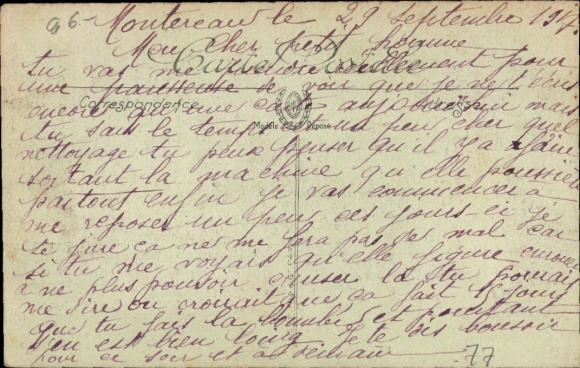 96- Montereau le 29 Septembre 191
Mon cher petit homme
Carte Postale
tu vas me réellement pour
une paresseuse de voir que je ne t'écris
encore qu'une carte aujourd'hui mais
Correspondence
tu sais le temps un peu cher quel
Modèle Déposé
nettoyage tu peux penser qu'il y a à faire
sortant la machine quelle poussière
partout enfin je vas commencer à
me reposer un peu ces jours-ci je
te jure ça ne me fera pas de mal car
si tu me voyais quelle figure
à ne plus pouvoir causer la tu pourrais
me dire on croirait que ça fait 15 jours
que tu fais la et pourtant
s'en est bien loin je te dis bonsoir
pour ce soir et à demain
77